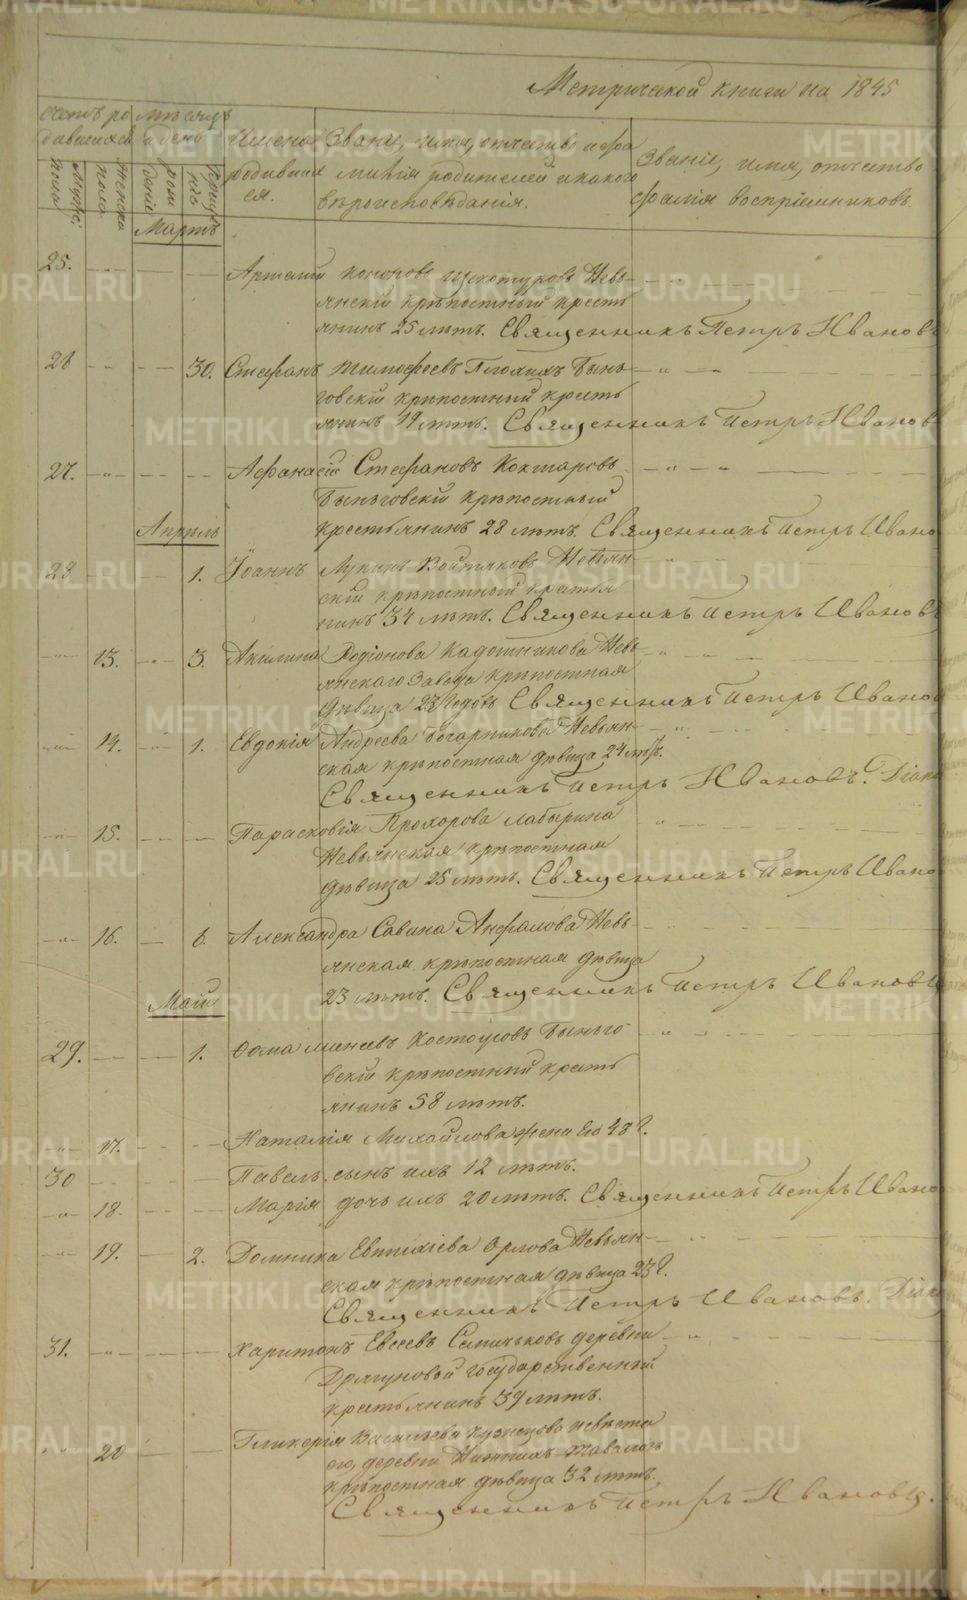 Метрической книги на 1845
счетъ ро мѣсяцъ
дившихся и день Имена Званіе, имя, отчество и фа
родивших милія родителей и какого Званіе, имя, отчество
ся. вѣроисповѣданія. фамилія воспріемниковъ.
Мартъ
25. Артемій
янскій крѣпостный кресть
янинъ 25 лѣтъ. Священникъ Петръ Ивановъ
26 30. Стефанъ Тимофеевъ Плохихъ Бынь
говскій крѣпостный кресть
янинъ 19 лѣтъ. Священникъ Петръ Ивановъ
27. Афанасій Стефановъ Кокшаровъ
Быньговскій крѣпостный
Апрѣль крестьянинъ 28 лѣтъ. Священникъ Петръ Ивано
28 1. Іоаннъ Лукинъ Войтяковъ Невьян
скій крѣпостной крестья
нинъ 34 лѣтъ. Священникъ Петръ Ивановъ
13. 3. Акилина Родіонова Кадошникова Невь
янскаго Завода крѣпостная
дѣвица 23 Годовъ Священникъ Петръ Иванов
14. 1. Евдокія Андреева Невьян
ская крѣпостная дѣвица 24 лѣтъ.
Священникъ Петръ Ивановъ. Діако
15. Парасковія Прохорова Лабырина
Невьянская крѣпостная
дѣвица 25 лѣтъ. Священникъ Петръ Ивано
16. 6. Александра Савина Анфалова Невь
янская крѣпостная дѣвица
Маій 23 лѣтъ. Священникъ Петръ Ивановъ
29. 1. Фома Минеевъ Костоусовъ Быньго
вскій крѣпостный кресть
янинъ 58 лѣтъ.
17. Наталія Михайлова жена его 48 г.
30 Павелъ, сынъ ихъ 12 лѣтъ.
18. Марія дочь ихъ 20 лѣтъ. Священникъ Петръ Ивано
19. 2. Домника Евтихіева Орлова Невьян
ская крѣпостная дѣвица 23 г.
Священникъ Петръ Ивановъ. Діако
31. Харитонъ Евсеевъ деревни
Государственный
крестьянинъ 39 лѣтъ.
20 Гликерія Васильева Кузнецова невѣста
его, деревни Нижнихъ Тавологъ
крѣпостная дѣвица 32 лѣтъ.
Священникъ Петръ Ивановъ.
METRIKI.GASO-URAL.RU